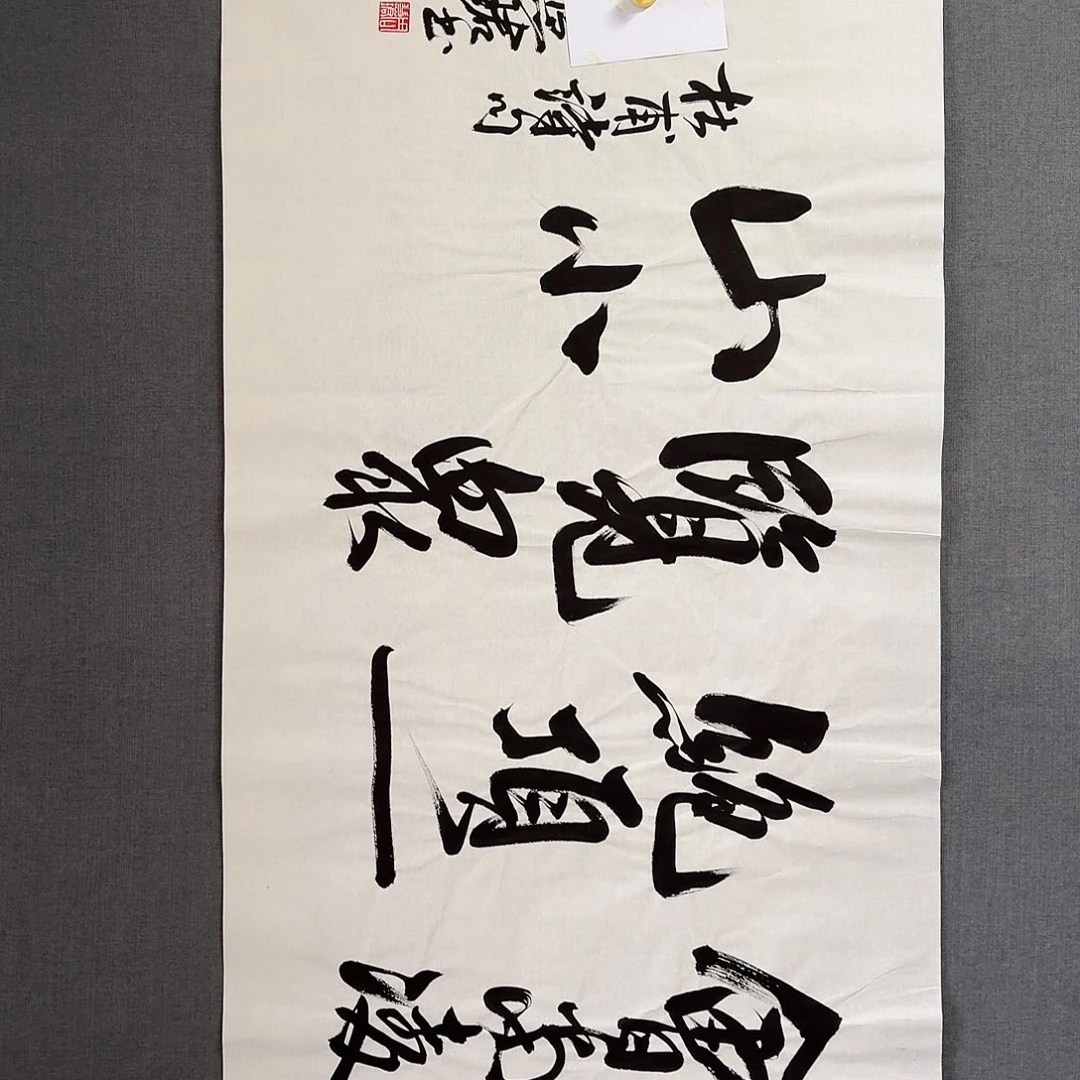 會當凌
絕頂一
覽眾
山小
杜甫
书